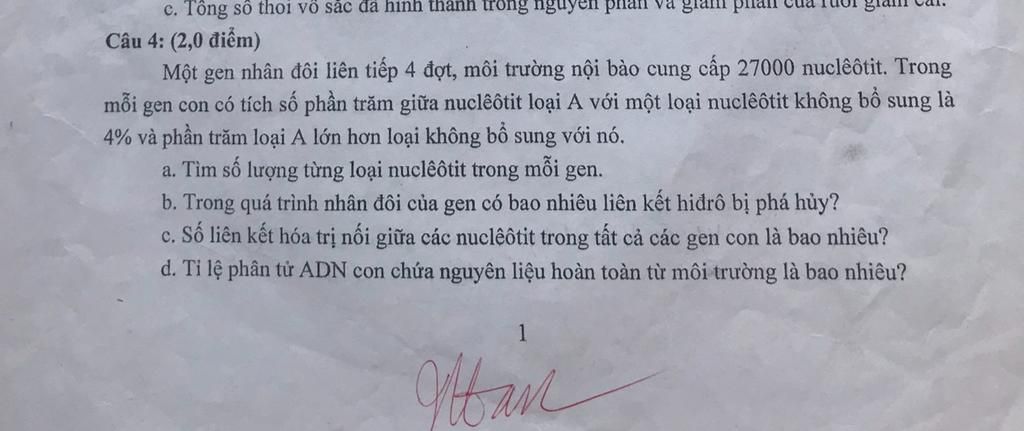 c. Tổng số thoi vô sắc đã hình thành trong nguyên phân và giảm phân của ruồi giấm cái.
Câu 4: (2,0 điểm)
Một gen nhân đôi liên tiếp 4 đợt, môi trường nội bào cung cấp 27000 nuclêôtit. Trong
mỗi gen con có tích số phần trăm giữa nuclêôtit loại A với một loại nuclêôtit không bổ sung là
4% và phần trăm loại A lớn hơn loại không bổ sung với nó.
a. Tìm số lượng từng loại nuclêôtit trong mỗi gen.
b. Trong quá trình nhân đôi của gen có bao nhiêu liên kết hiđrô bị phá hủy?
c. Số liên kết hóa trị nối giữa các nuclêôtit trong tất cả các gen con là bao nhiêu?
d. Tỉ lệ phân tử ADN con chứa nguyên liệu hoàn toàn từ môi trường là bao nhiêu?
1